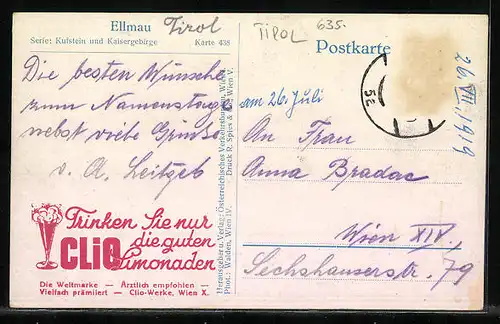 Ellmau Tirol
Serie: Kufstein und Kaisergebirge Karte 438
TIROL
635.-
Postkarte
26. VII. 1919
52
Die besten Wünsche
zum Namenstage
nebst viele Grüße
v. A. Leitgeb
am 26. Juli
An Frau
Anna Bradac
Wien XIV.
Sechshauserstr. 79
Herausgeber u. Verlag: Österreichisches Verkehrsbureau, Wien
Druck R. Spies & Co. Wien V.
Phot.: Walden, Wien IV.
Trinken Sie nur
die guten
CLIO Limonaden
Die Weltmarke — Ärztlich empfohlen —
Vielfach prämiiert — Clio-Werke, Wien X.